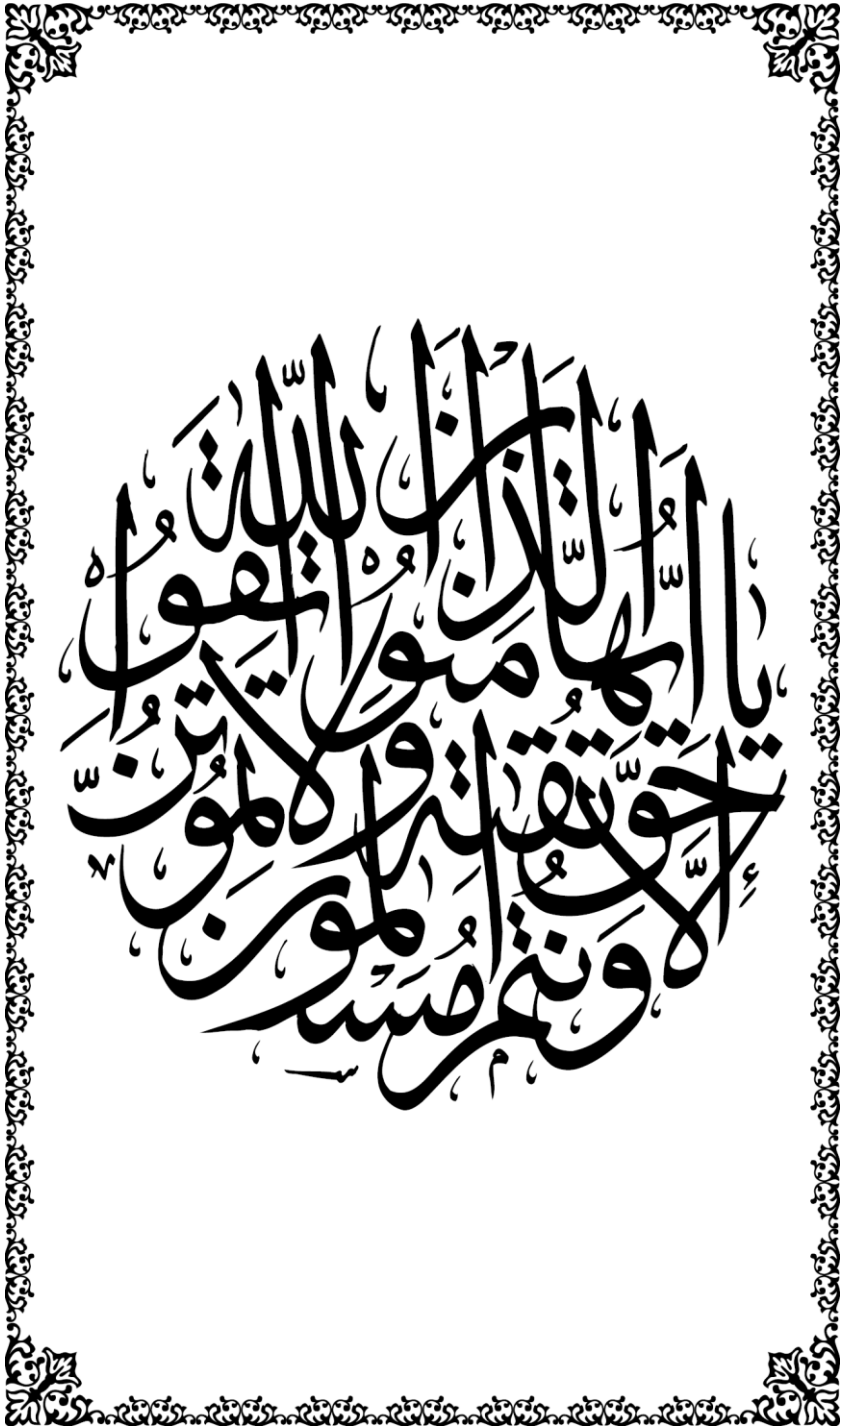 يَا أَيُّهَا الَّذِينَ آمَنُوا اتَّقُوا اللَّهَ
حَقَّ تُقَاتِهِ وَلَا تَمُوتُنَّ
إِلَّا وَأَنتُم مُّسْلِمُونَ